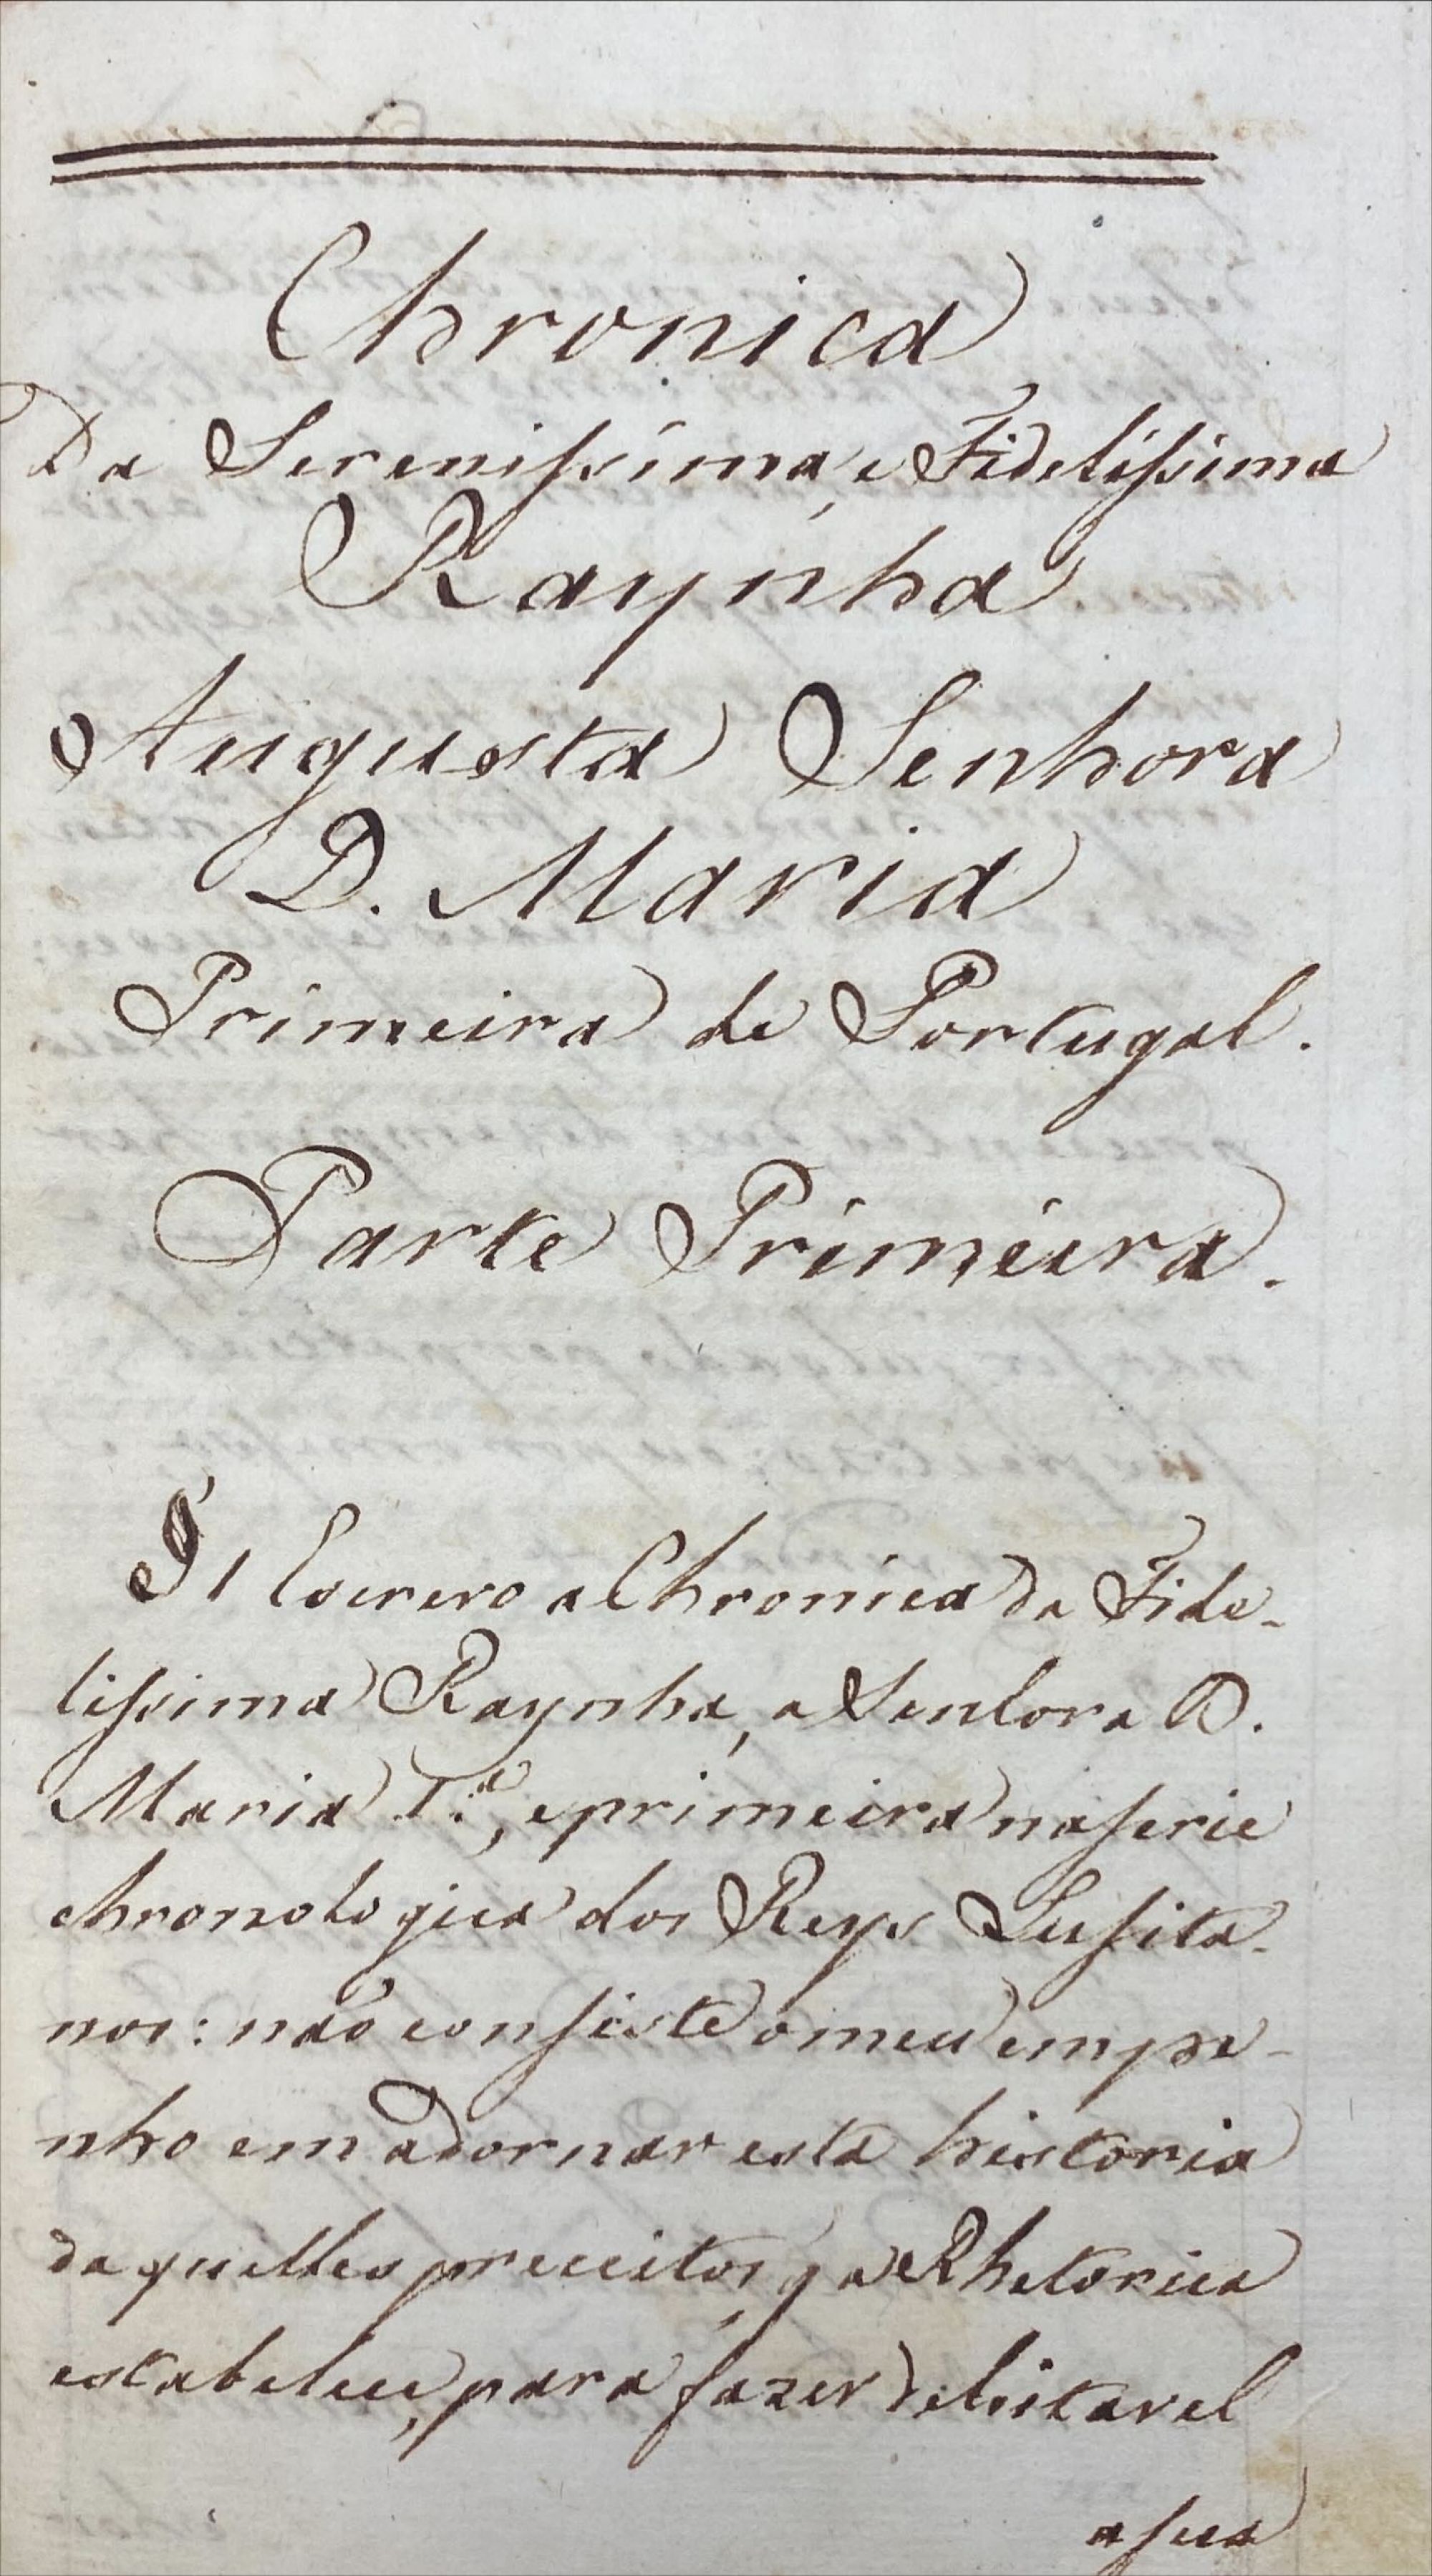 Chronica
Da Serenissima, e Fidelissima
Raynha
Augusta Senhora
D. Maria
Primeira de Portugal.
Parte Primeira.
§ 1 Escrevo a Chronica da Fide-
lissima Raynha, a Senhora D.
Maria 1.ª, e primeira na serie
chronologica dos Reys Lusita-
nos: não consiste o meu empe-
nho em adornar esta historia
daquelles preceitos, q̃ a Rhetorica
estabelece, para fazer deleitavel
a sua